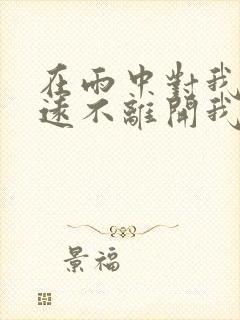 在雨中對我
遠不離開我
景福